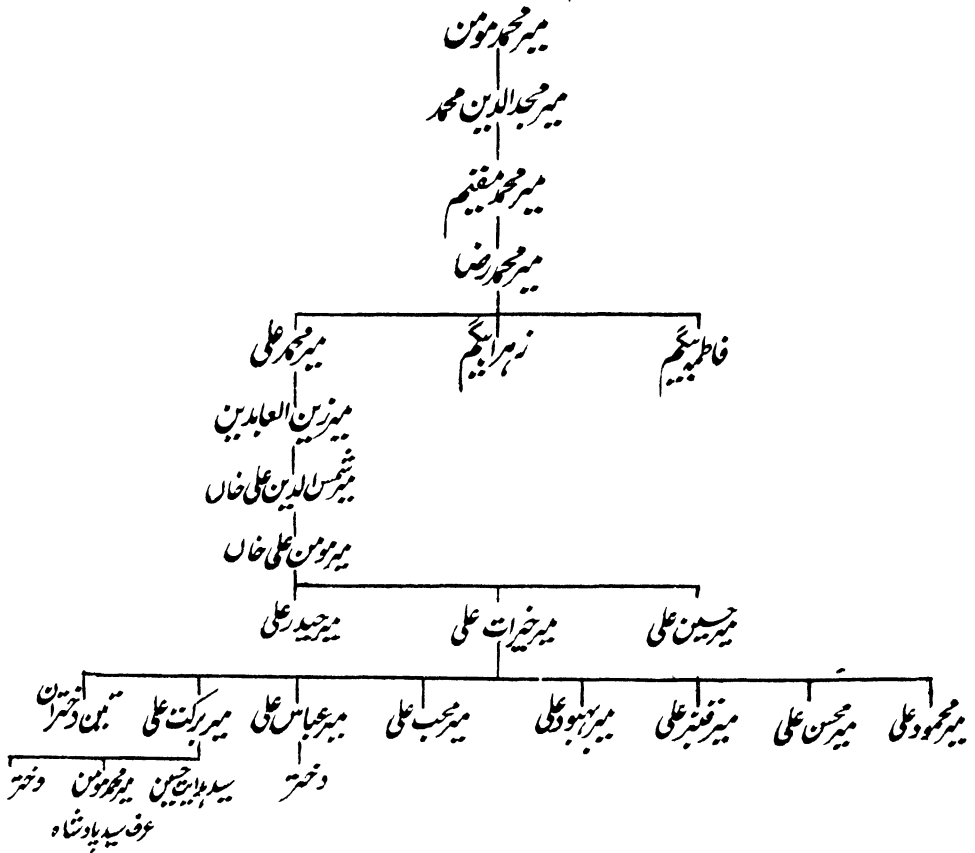 میر محمد مومن
میر مجد الدین محمد
میر محمد مقیم
میر محمد رضا
فاطمہ بیگم زہرا بیگم میر محمد علی
میر زین العابدین
میر شمس الدین علی خاں
میر مومن علی خاں
میر حسین علی میر خیرات علی میر حیدر علی
میر محمود علی میر محسن علی میر قنبر علی میر بہبود علی میر محب علی میر عباس علی میر برکت علی تین دختران
دختر سید ہدایت حسین میر محمد مومن دختر
عرف سید پادشاہ